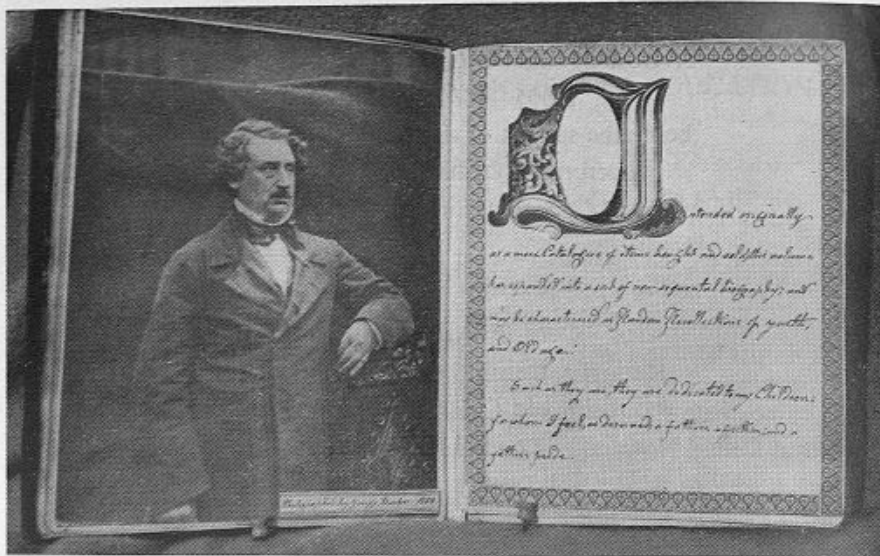 Photographed by George
Intended originally
as a mere Catalogue of items bought and sold, this volume
has expanded into a sort of non-sequental biography; and
may be characterised as Random Recollections of youth,
and Old age.
Such as they are, they are dedicated to my Children:
for whom I feel, as deserved, a fathers affection, and a
fathers pride.